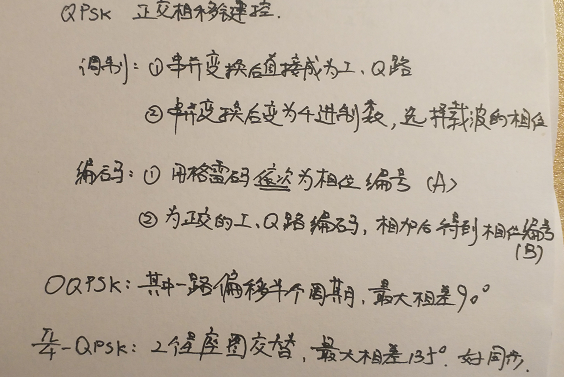 QPSK 正交相移键控.
调制: ① 串并变换后直接成为I、Q路
② 串并变换后变为4进制数, 选择载波的相位
编码: ① 用格雷码依次为相位编号 (A)
② 为正交的I、Q路编码, 相加后得到相位编号
(B)
OQPSK: 其中一路偏移半个周期, 最大相差90°
π/4-QPSK: 2个星座图交替, 最大相差135°. 好同步.